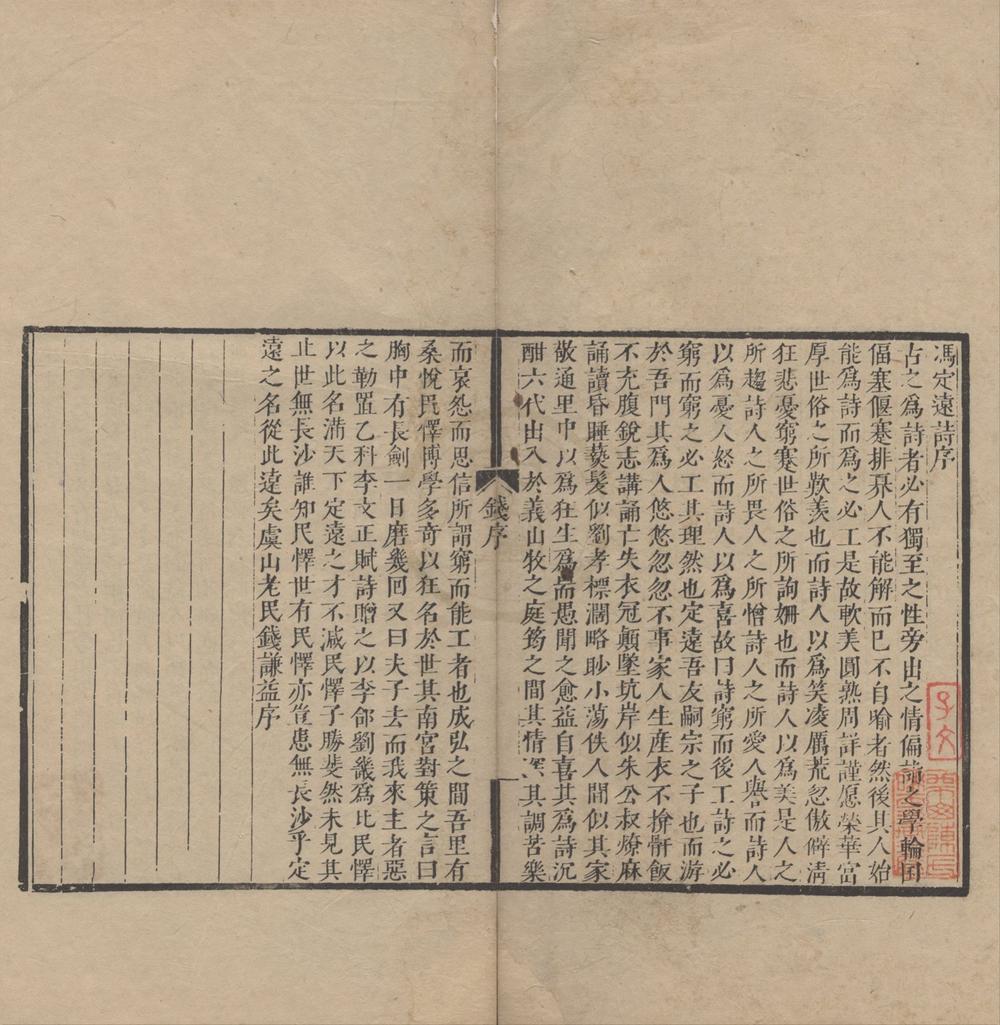 馮定遠詩序
古之爲詩者必有獨至之性旁出之情偏詣之學輪囷
偪塞偃蹇排奡人不能解而已不自喻者然後其人始
能爲詩而爲之必工是故軟美圓熟周詳謹愿榮華富
厚世俗之所歎羨也而詩人以爲笑凌厲荒忽傲僻清
狂悲憂窮蹇世俗之所詢姍也而詩人以爲美是人之
所趨詩人之所畏人之所憎詩人之所愛人譽而詩人
以爲憂人怒而詩人以爲喜故曰詩窮而後工詩之必
窮而窮之必工其理然也定遠吾友嗣宗之子也而游
於吾門其爲人悠悠忽忽不事家人生產衣不揜骭飯
不充腹銳志講誦亡失衣冠顚墜坑岸似朱公叔燎麻
誦讀昏睡爇髮似劉孝標濶略眇小蕩佚人間似其家
敬通里中以爲狂生爲耑愚聞之愈益自喜其爲詩沉
酣六代出入於義山牧之庭筠之間其情深其調苦樂
錢序
而哀怨而思信所謂窮而能工者也成弘之間吾里有
桑悅民懌博學多奇以狂名於世其南宮對策之言曰
胸中有長劍一日磨幾回又曰夫子去而我來主者惡
之勒置乙科李文正賦詩贈之以李郃劉蕡爲比民懌
以此名滿天下定遠之才不減民懌子勝斐然未見其
止世無長沙誰知民懌世有民懌亦豈患無長沙乎定
遠之名從此遠矣虞山老民錢謙益序
子文